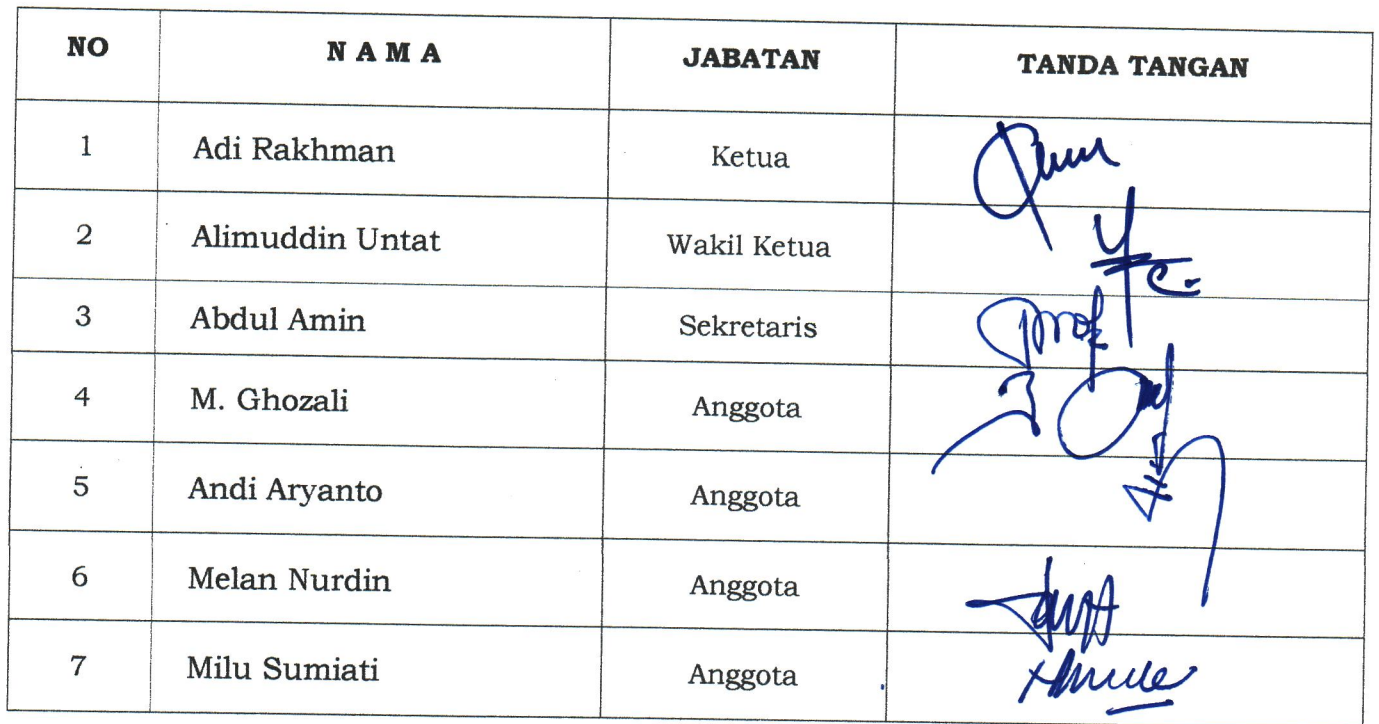 NO N A M A JABATAN TANDA TANGAN
1 Adi Rakhman Ketua
2 Alimuddin Untat Wakil Ketua
3 Abdul Amin Sekretaris
4 M. Ghozali Anggota
5 Andi Aryanto Anggota
6 Melan Nurdin Anggota
7 Milu Sumiati Anggota